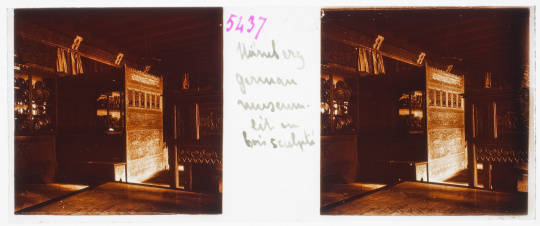 5437
Nürnberg
german
museum.
lit en
bois sculpté